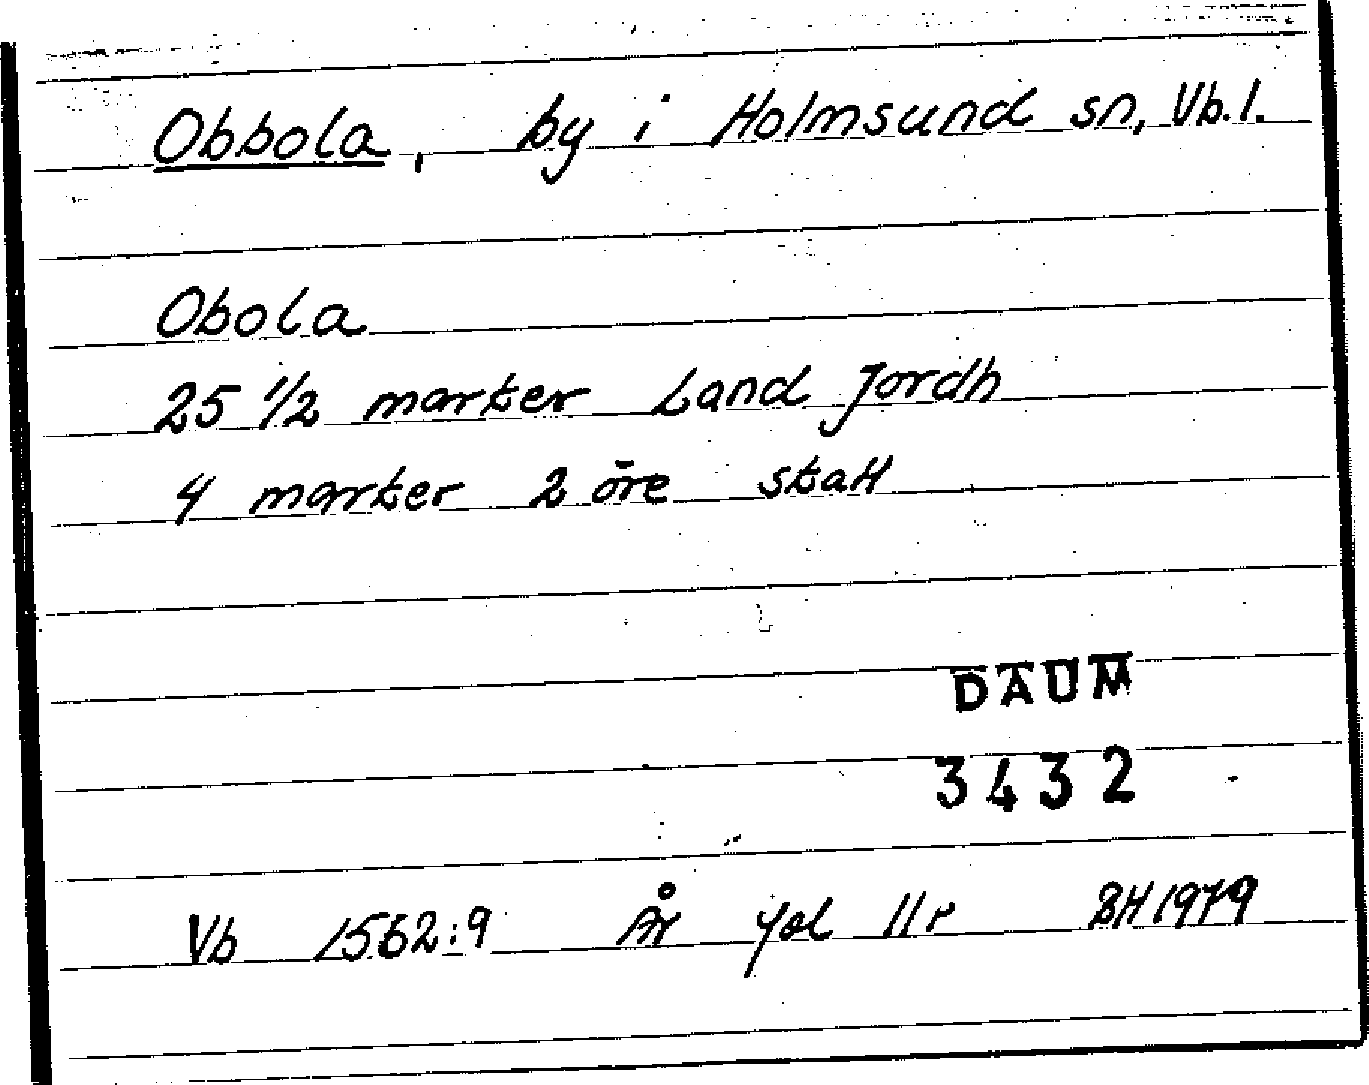 Obbola, by i Holmsund sn, Vb.l.
Obola
25 1/2 marker Land Jordh
4 marker 2 öre skatt
DAUM
3432
Vb 1562:9 År fol 11r BH 1979